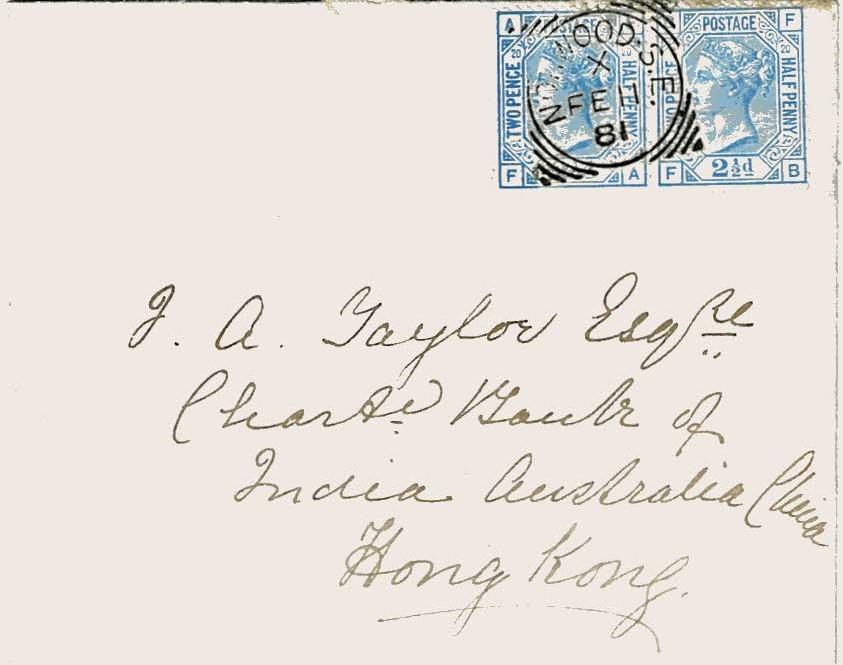 A POSTAGE
TWO PENCE
20
HALF PENNY
F A
POSTAGE F
20
HALF PENNY
F 2½d B
NORWOOD·S.E.
X
FE 11
81
J. A. Taylor Esqre
Chartd Bank of
India Australia China
Hong Kong.